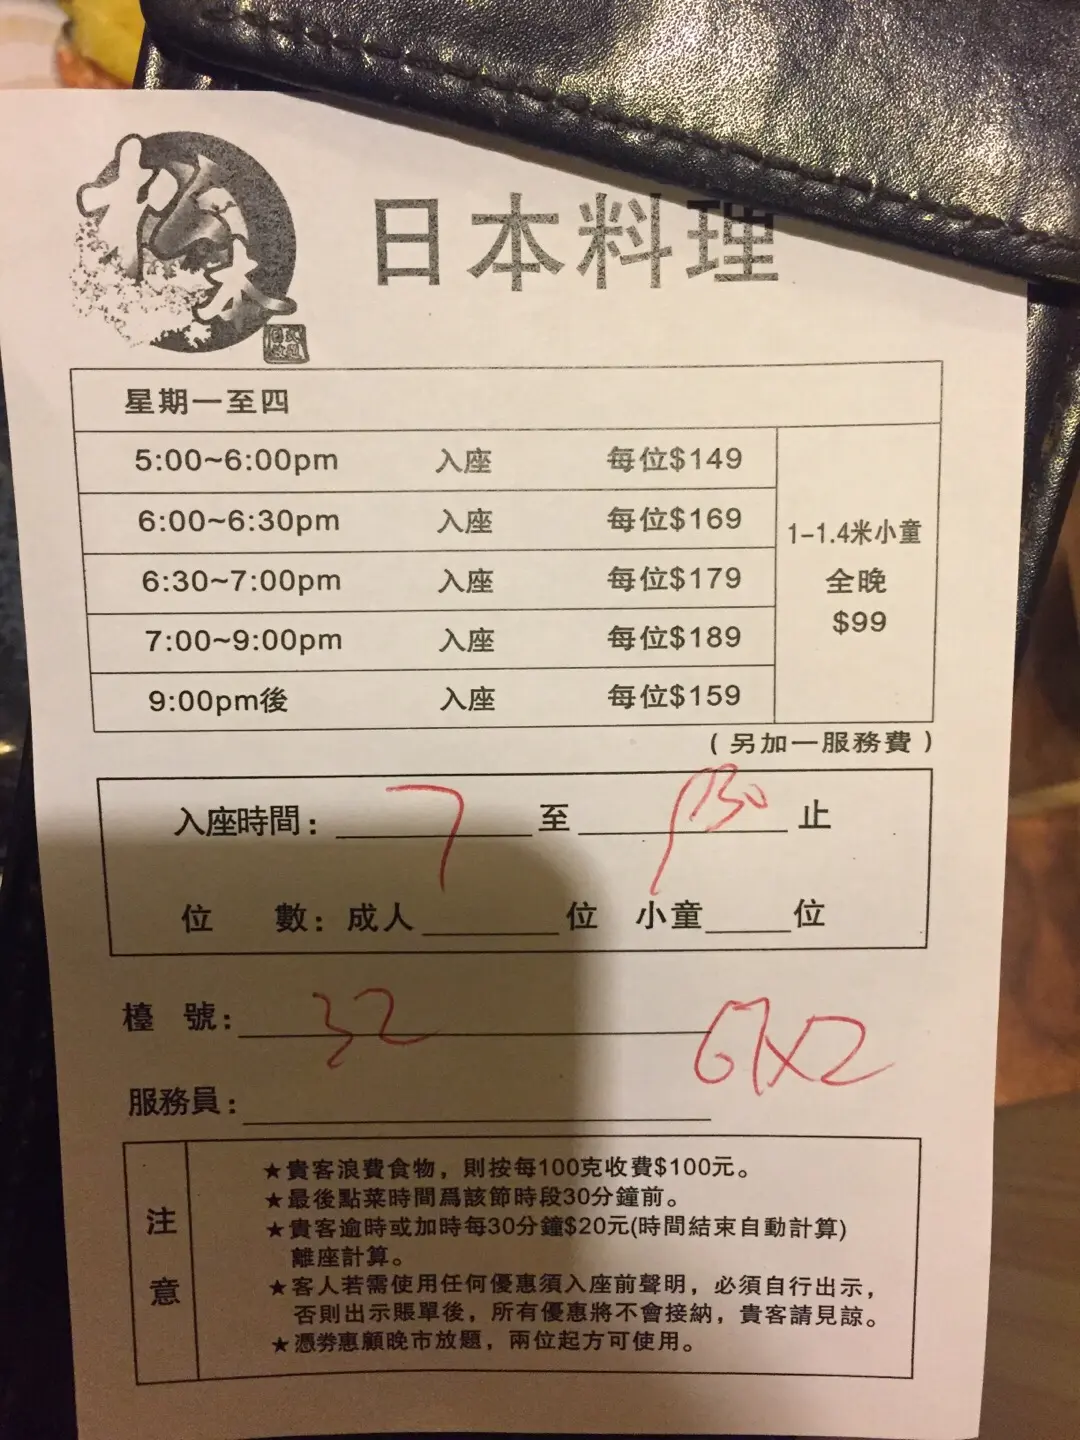 日本料理
星期一至四
5:00~6:00pm 入座 每位$149
6:00~6:30pm 入座 每位$169
6:30~7:00pm 入座 每位$179
7:00~9:00pm 入座 每位$189
9:00pm後 入座 每位$159
1-1.4米小童
全晚
$99
(另加一服務費)
入座時間: 7 至 止
位 數: 成人 位 小童 位
檯 號: 32
服務員:
注意
★貴客浪費食物，則按每100克收費$100元。
★最後點菜時間爲該節時段30分鐘前。
★貴客逾時或加時每30分鐘$20元(時間結束自動計算)
離座計算。
★客人若需使用任何優惠須入座前聲明，必須自行出示，
否則出示賬單後，所有優惠將不會接納，貴客請見諒。
★憑劵惠顧晚市放題，兩位起方可使用。